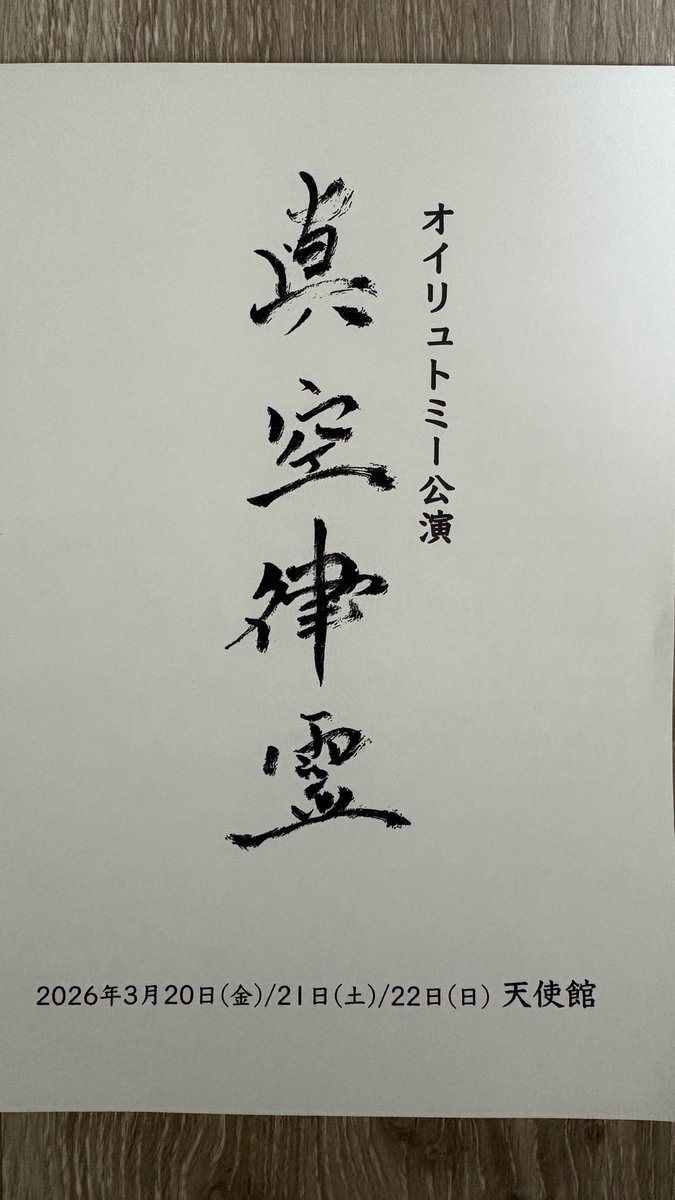 オイリュトミー公演
真空律霊
2026年3月20日(金)/21日(土)/22日(日) 天使館